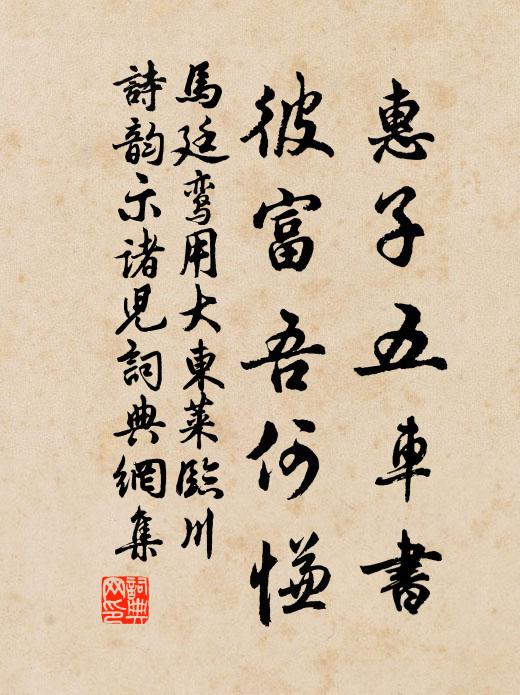 惠子五車書
彼富吾何慊
馬廷鸾用大東萊臨川
詩韵示诸児詞典網集
詞典网印